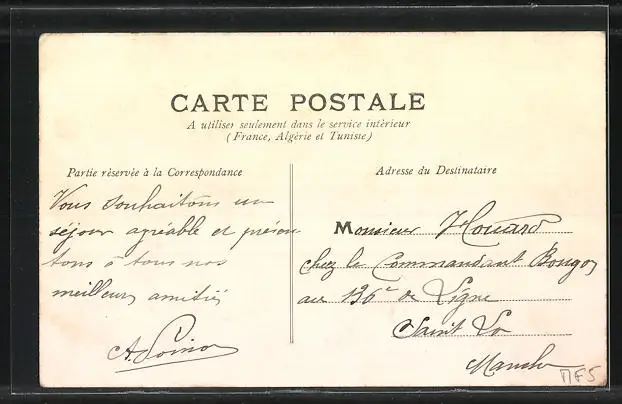 CARTE POSTALE
A utiliser seulement dans le service intérieur
(France, Algérie et Tunisie)
Partie réservée à la Correspondance
Vous souhaitons un
séjour agréable et présen
tons à tous nos
meilleurs amitiés
Adresse du Destinataire
Monsieur Houard
chez le Commandant
au 136e de Ligne
Saint Lo
Manche